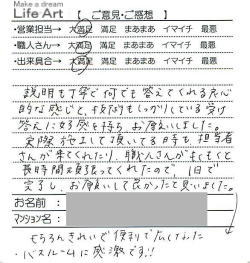 Make a dream
Life Art 【 ご意見・ご感想 】
・営業担当→ 大満足 満足 まあまあ イマイチ 最悪
・職人さん→ 大満足 満足 まあまあ イマイチ 最悪
・出来具合→ 大満足 満足 まあまあ イマイチ 最悪
説明も丁寧で何でも答えてくれる良心
的な感じと、技術などもしっかりしている受け
答えに好感を持ち、お願いしました。
実際施工して頂いてる時も、担当者
さんが来てくれたり、職人さんがとっても
長時間頑張ってくれたので、1日で
完了し、お願いして良かったと思いました。
お名前：
マンション名：
もちろんきれいで便利で広くなった
バスルームに感激です!!